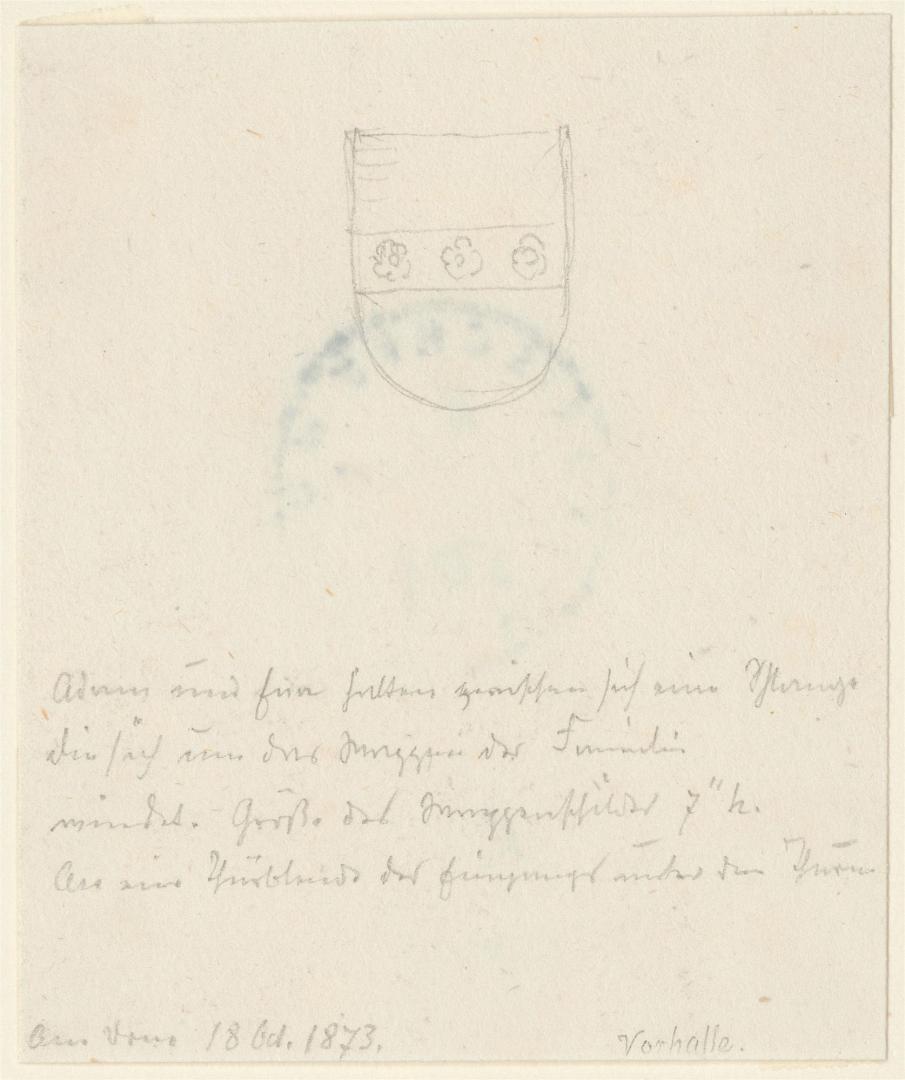 Adam und Eva halten zwischen sich eine Schlange
die sich um das Wappen der Familie
windet. Größe des Wappenschildes 7" h.
An eine Thürblende des Eingangs unter den Thurm
Am Dom 18 Oct. 1873.
Vorhalle.